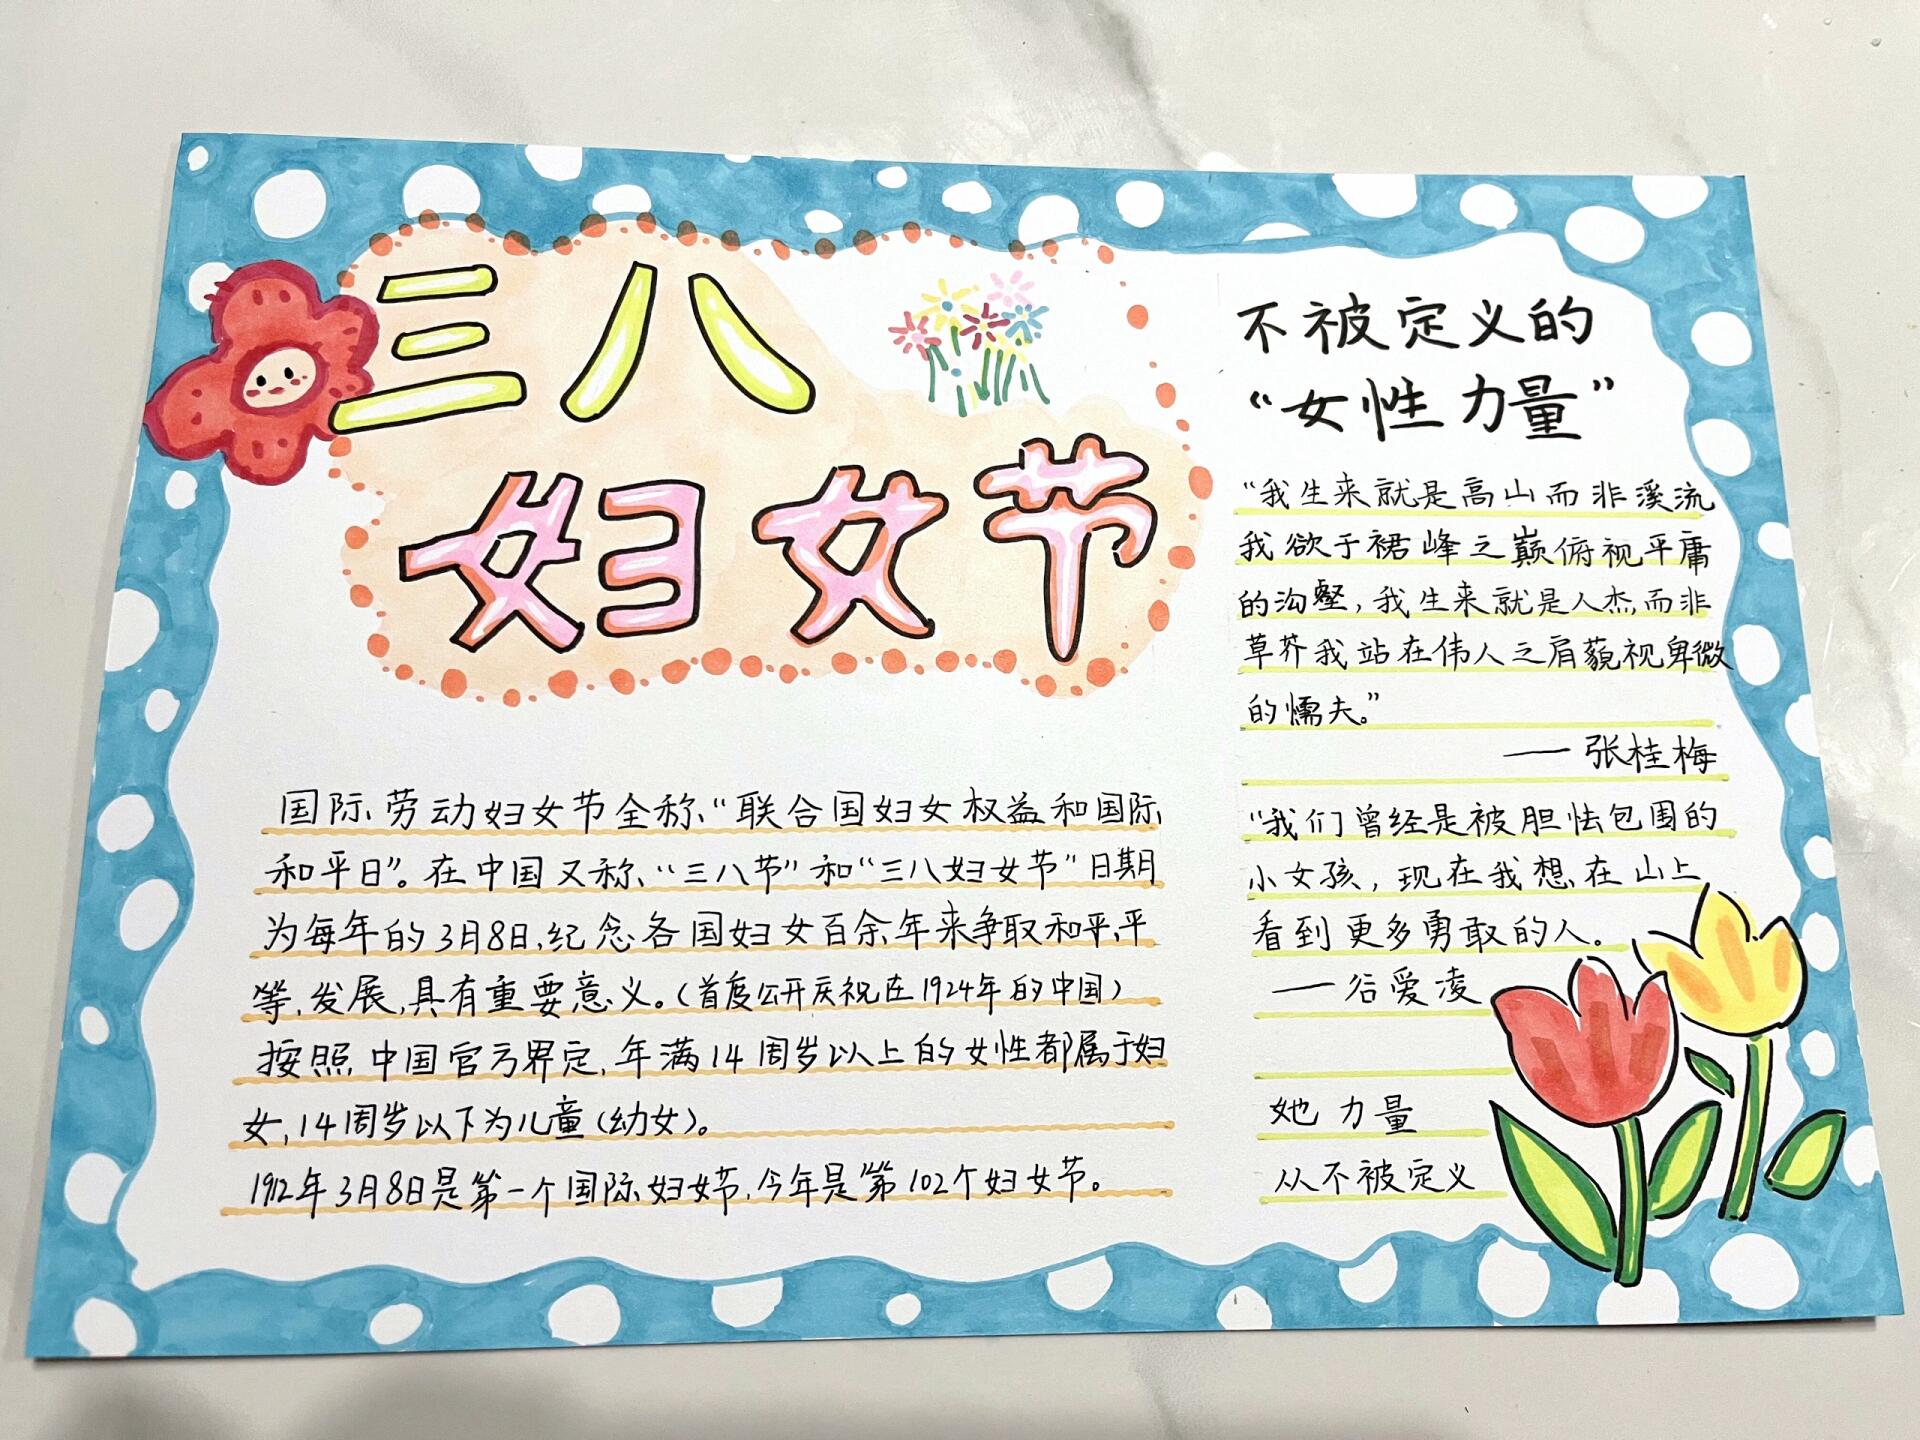 三八
妇女节
国际劳动妇女节全称“联合国妇女权益和国际
和平日”。在中国又称“三八节”和“三八妇女节”日期
为每年的3月8日,纪念各国妇女百余年来争取和平,平
等,发展,具有重要意义。(首度公开庆祝在1924年的中国)
按照中国官方界定,年满14周岁以上的女性都属于妇
女,14周岁以下为儿童(幼女)。
1912年3月8日是第一个国际妇女节,今年是第102个妇女节。
不被定义的
“女性力量”
“我生来就是高山而非溪流
我欲于裙峰之巅俯视平庸
的沟壑,我生来就是人杰,而非
草芥我站在伟人之肩藐视卑微
的懦夫。”
——张桂梅
“我们曾经是被胆怯包围的
小女孩,现在我想在山上
看到更多勇敢的人。
——谷爱凌
她力量
从不被定义